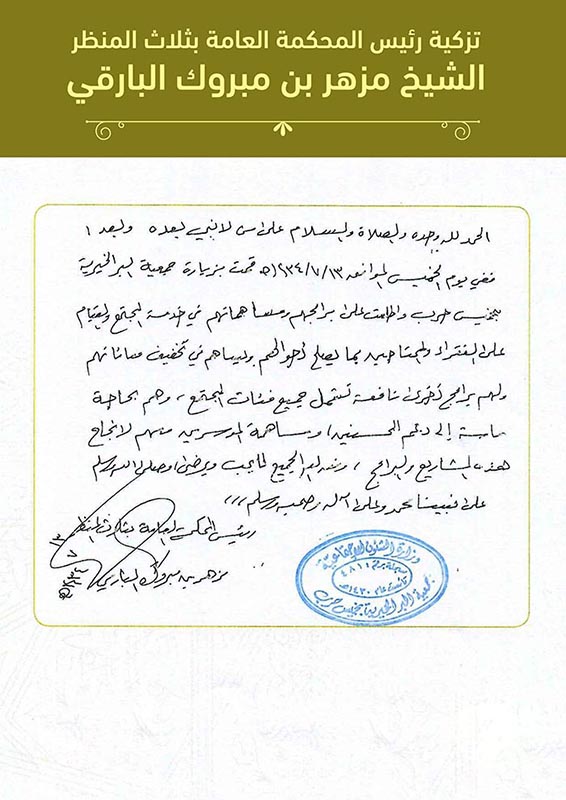 تزكية رئيس المحكمة العامة بثلاث المنظر
الشيخ مزهر بن مبروك البارقي
الحمد لله وحده والصلاة والسلام على من لا نبي بعده وبعد :
ففي يوم الخميس الموافق ١٤٣٤/٧/١٣هـ قمت بزيارة جمعية البر الخيرية
بخميس حرب واطلعت على برامجهم ومساهماتهم في خدمة المجتمع والقيام
على الفقراء والمحتاجين بما يصلح أحوالهم ويساهم في تخفيف معاناتهم
ولهم برامج أخرى نافعة تشمل جميع فئات المجتمع ، وهم بحاجة
ماسة إلى دعم المحسنين ومساهمة الموسرين منهم لإنجاح
هذه المشاريع والبرامج ، وفق الله الجميع لما يحب ويرضى وصلى الله وسلم
على نبينا محمد وعلى آله وصحبه وسلم ،،،
رئيس المحكمة العامة بثلاث المنظر
مزهر بن مبروك البارقي
١٣ / ٧ / ١٤٣٤هـ
وزارة الشئون الاجتماعية
مسجلة برقم ٤٨١
تأسست عام ١٤٣٠هـ
جمعية البر الخيرية بخميس حرب